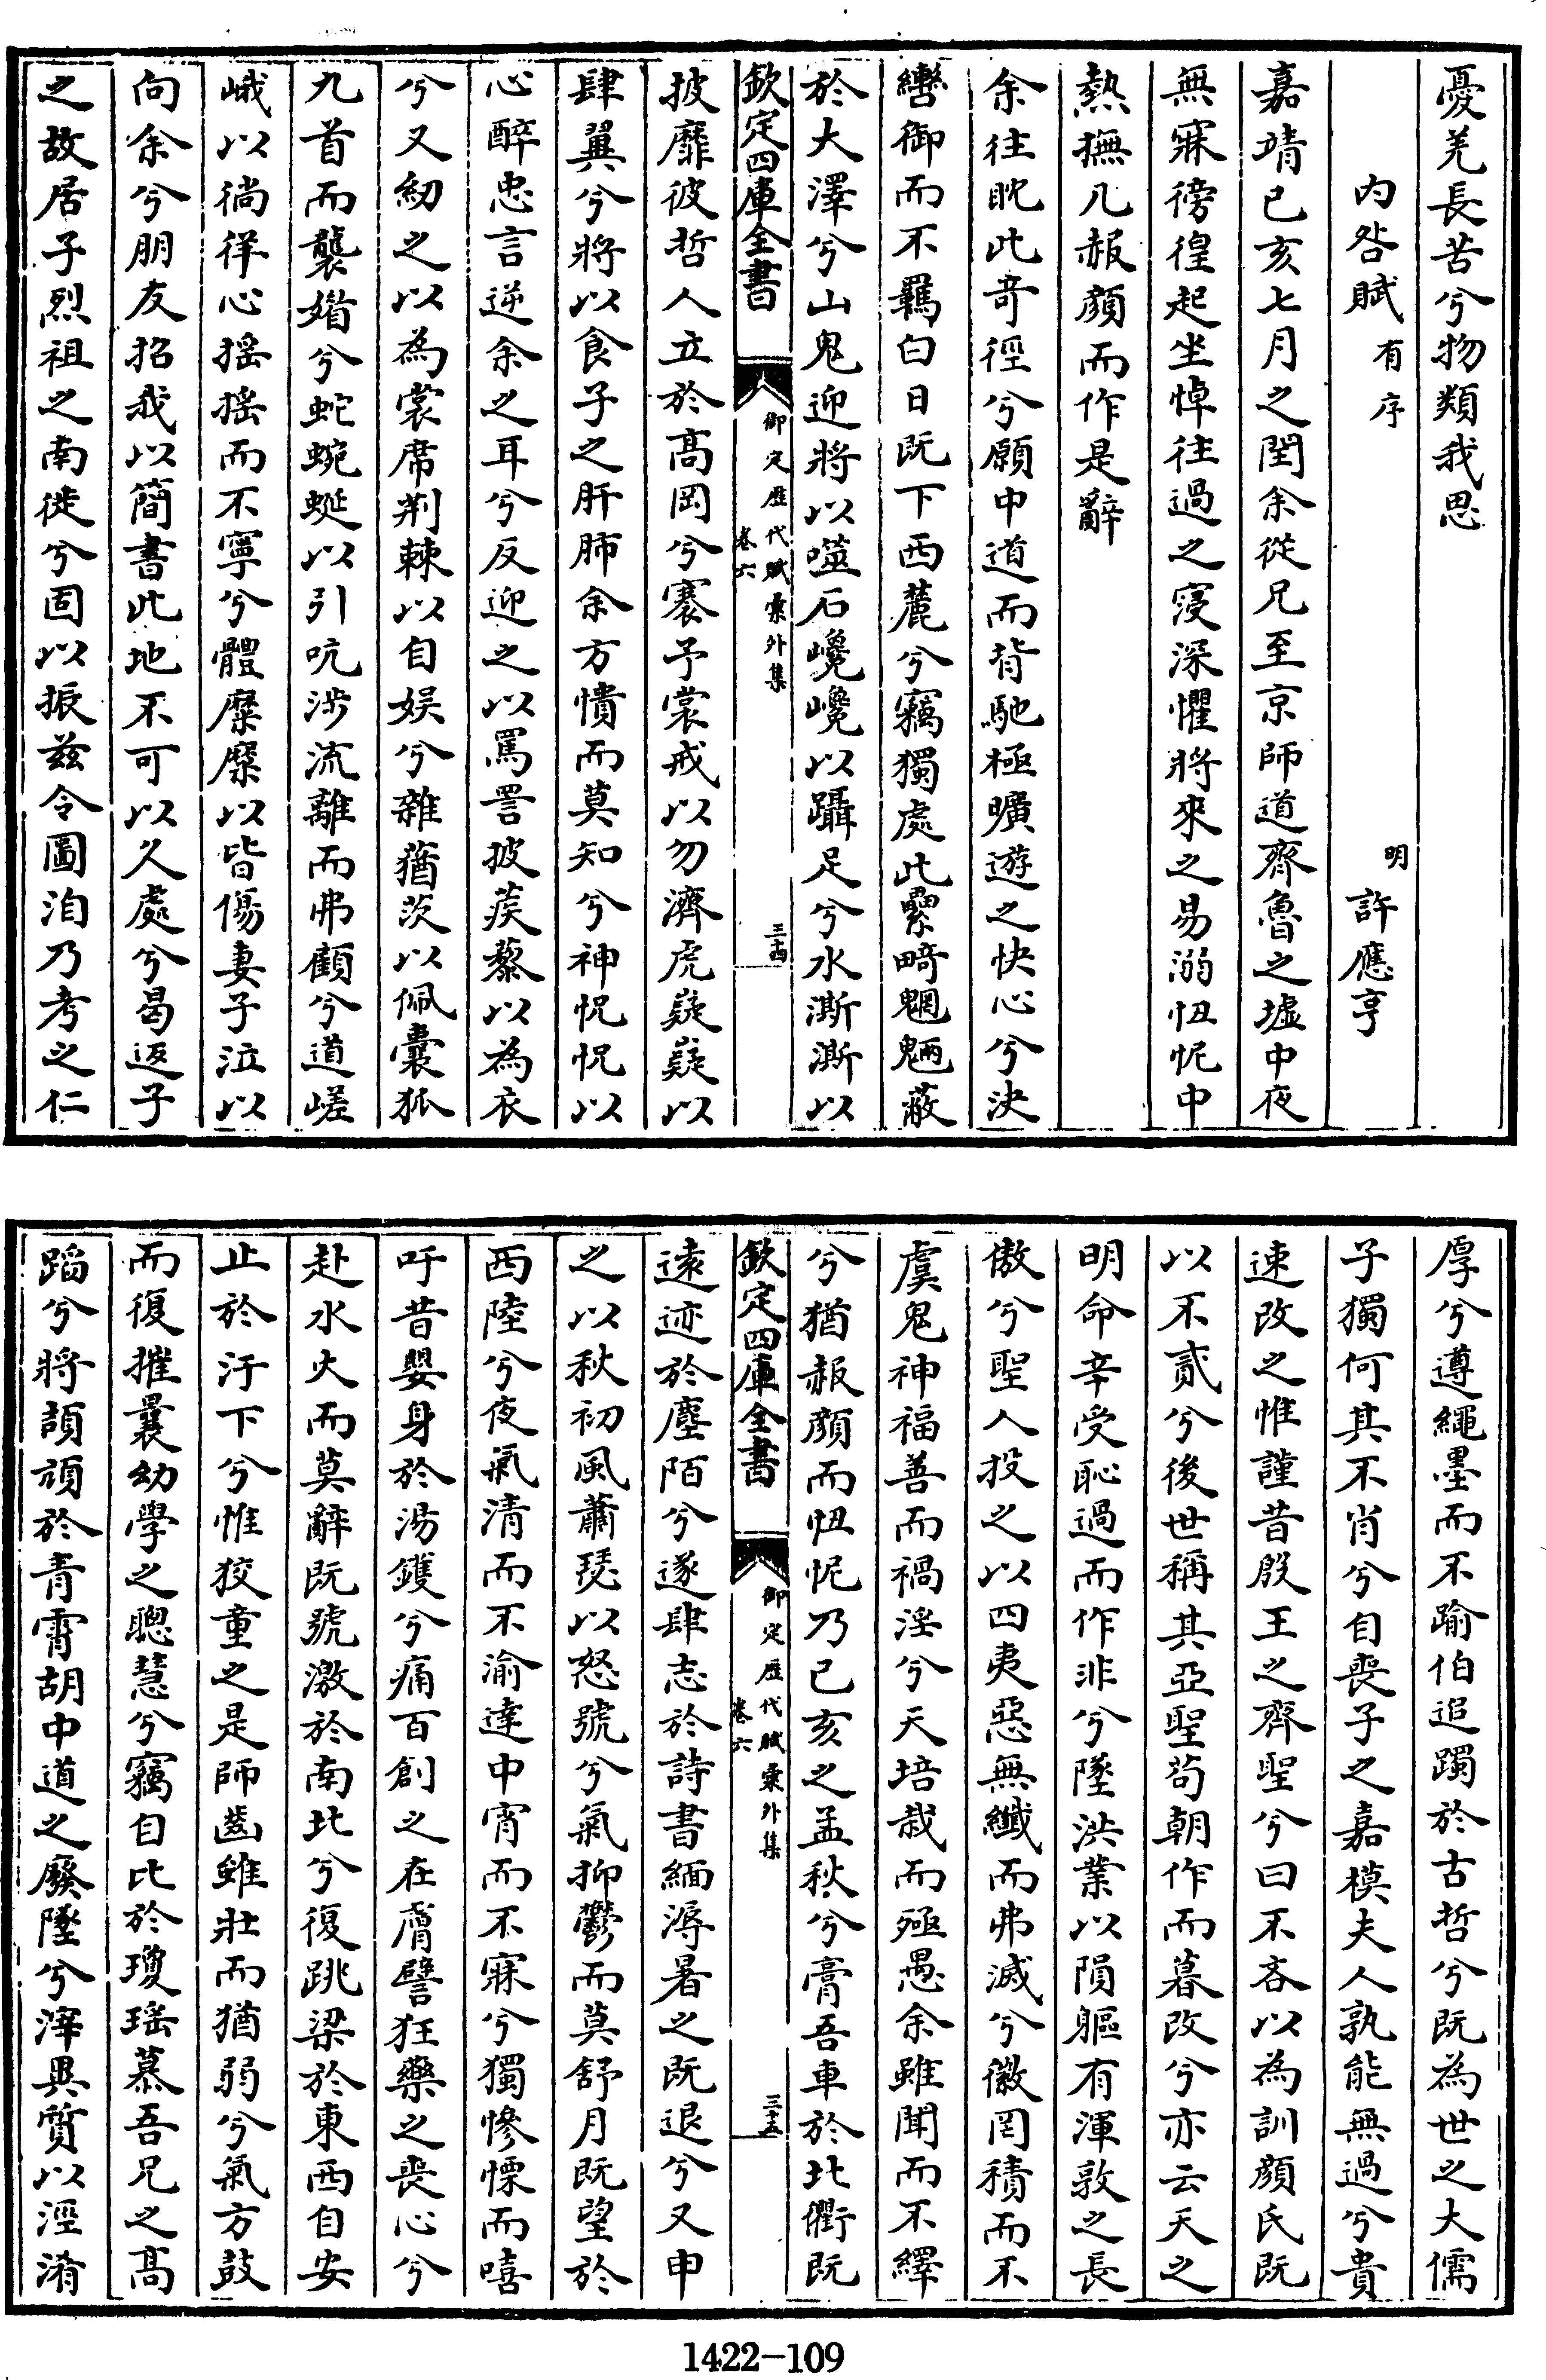 憂羌長苦兮物類我思
内咎賦有序 明 許應亨
嘉靖已亥七月之閏余從兄至京師道齊魯之墟中夜
無寐徬徨起坐悼往過之寖深懼將來之易溺忸怩中
熱撫几赧顔而作是辭
余往眈此竒徑兮願中道而背馳極曠遊之快心兮決
轡御而不羈白日既下西麓兮竊獨處此纍畸魍魎蔽
於大澤兮山鬼迎將以噬石巉巉以躡足兮水澌澌以
欽定四庫全書 御定歴代賦彙外集 卷六 三十四
披靡彼哲人立於髙岡兮褰予裳戒以勿濟虎嶷嶷以
肆翼兮將以食子之肝肺余方憒而莫知兮神怳怳以
心醉忠言逆余之耳兮反迎之以罵詈披蒺藜以為衣
兮又紉之以為裳席荆棘以自娱兮雜蕕茨以佩囊狐
九首而襲媘兮蛇蜿蜒以引吭涉流離而弗顧兮道嵯
峨以徜徉心揺揺而不寧兮體糜糜以皆傷妻子泣以
向余兮朋友招我以簡書此地不可以久處兮曷返子
之故居子烈祖之南徙兮固以振兹令圖洎乃考之仁
厚兮遵繩墨而不踰伯追躅於古哲兮既為世之大儒
子獨何其不肖兮自喪子之嘉模夫人孰能無過兮貴
速改之惟謹昔殷王之齊聖兮曰不吝以為訓顔氏既
以不貳兮後世稱其亞聖苟朝作而暮改兮亦云天之
明命辛受恥過而作非兮墜洪業以隕軀有渾敦之長
傲兮聖人投之以四夷惡無纖而弗滅兮徽罔積而不
虞鬼神福善而禍淫兮天培栽而殛愚余雖聞而不繹
兮猶赧顔而忸怩乃已亥之孟秋兮膏吾車於北衢既
欽定四庫全書 御定歴代賦彙外集 卷六 三十五
遠迹於塵陌兮遂肆志於詩書緬溽暑之既退兮又申
之以秋初風蕭瑟以怒號兮氣抑鬱而莫舒月既望於
西陸兮夜氣清而不渝達中宵而不寐兮獨慘慄而嘻
吁昔嬰身於湯鑊兮痛百創之在膚譬狂藥之喪心兮
赴水火而莫辭既號激於南北兮復跳梁於東西自安
止於汙下兮惟狡童之是師齒雖壯而猶弱兮氣方鼓
而復摧曩幼學之聰慧兮竊自比於瓊瑶慕吾兄之髙
蹈兮將頡頏於青霄胡中道之廢墜兮滓異質以淫淆
1422-109